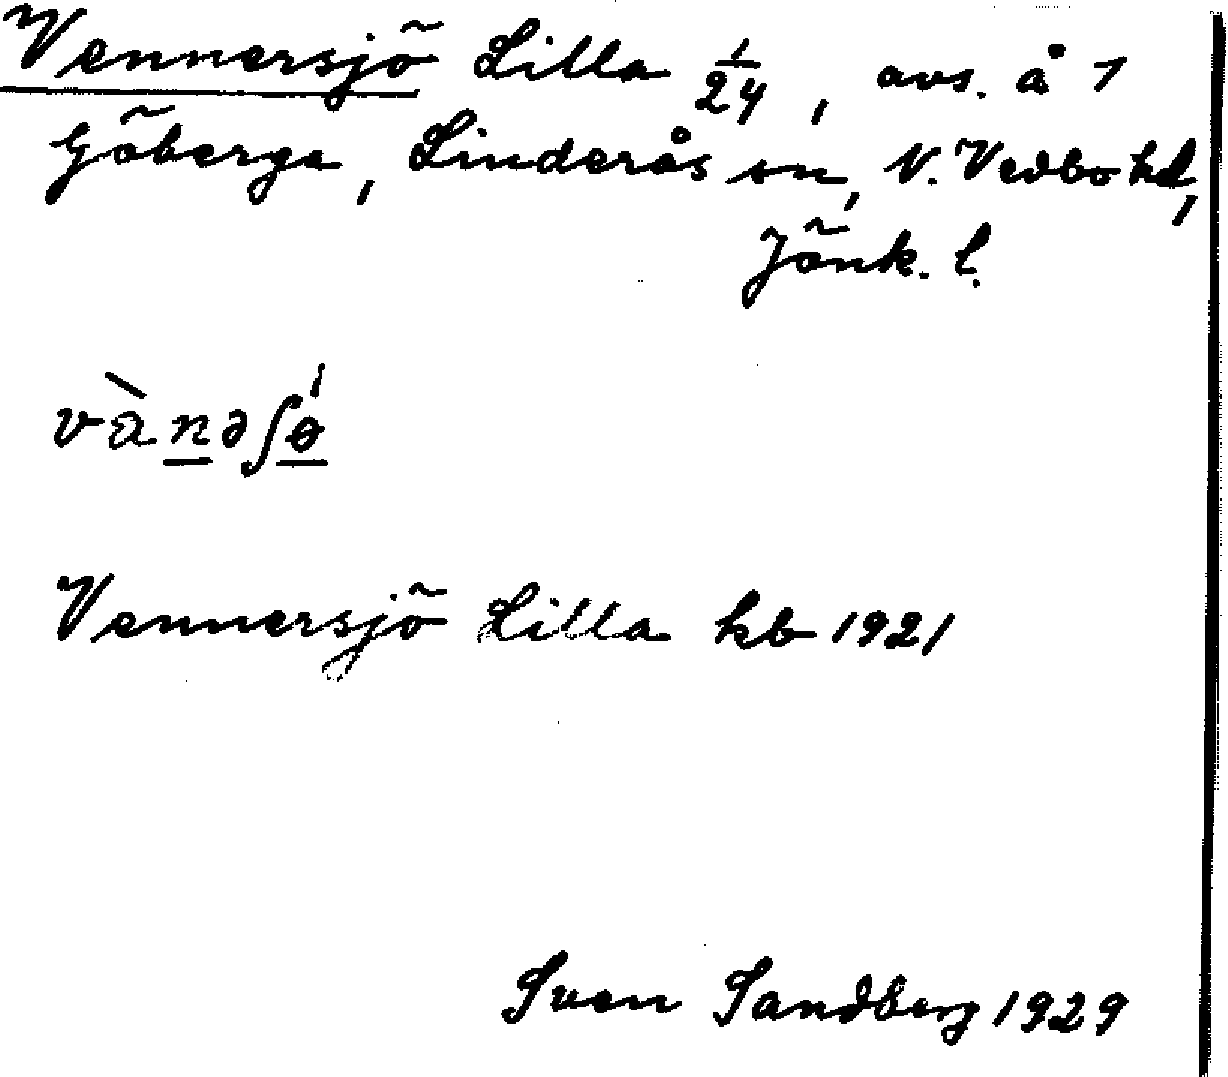 Vennersjö Lilla 1/24, avs. å 1
Göberga, Linderås sn, N. Vedbo hd,
Jönk. l.
và̱nəʃɵ
Vennersjö Lilla kb 1921
Sven Sandberg 1929